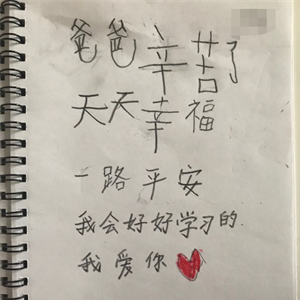 爸爸辛苦了
天天幸福
一路平安
我会好好学习的.
我爱你